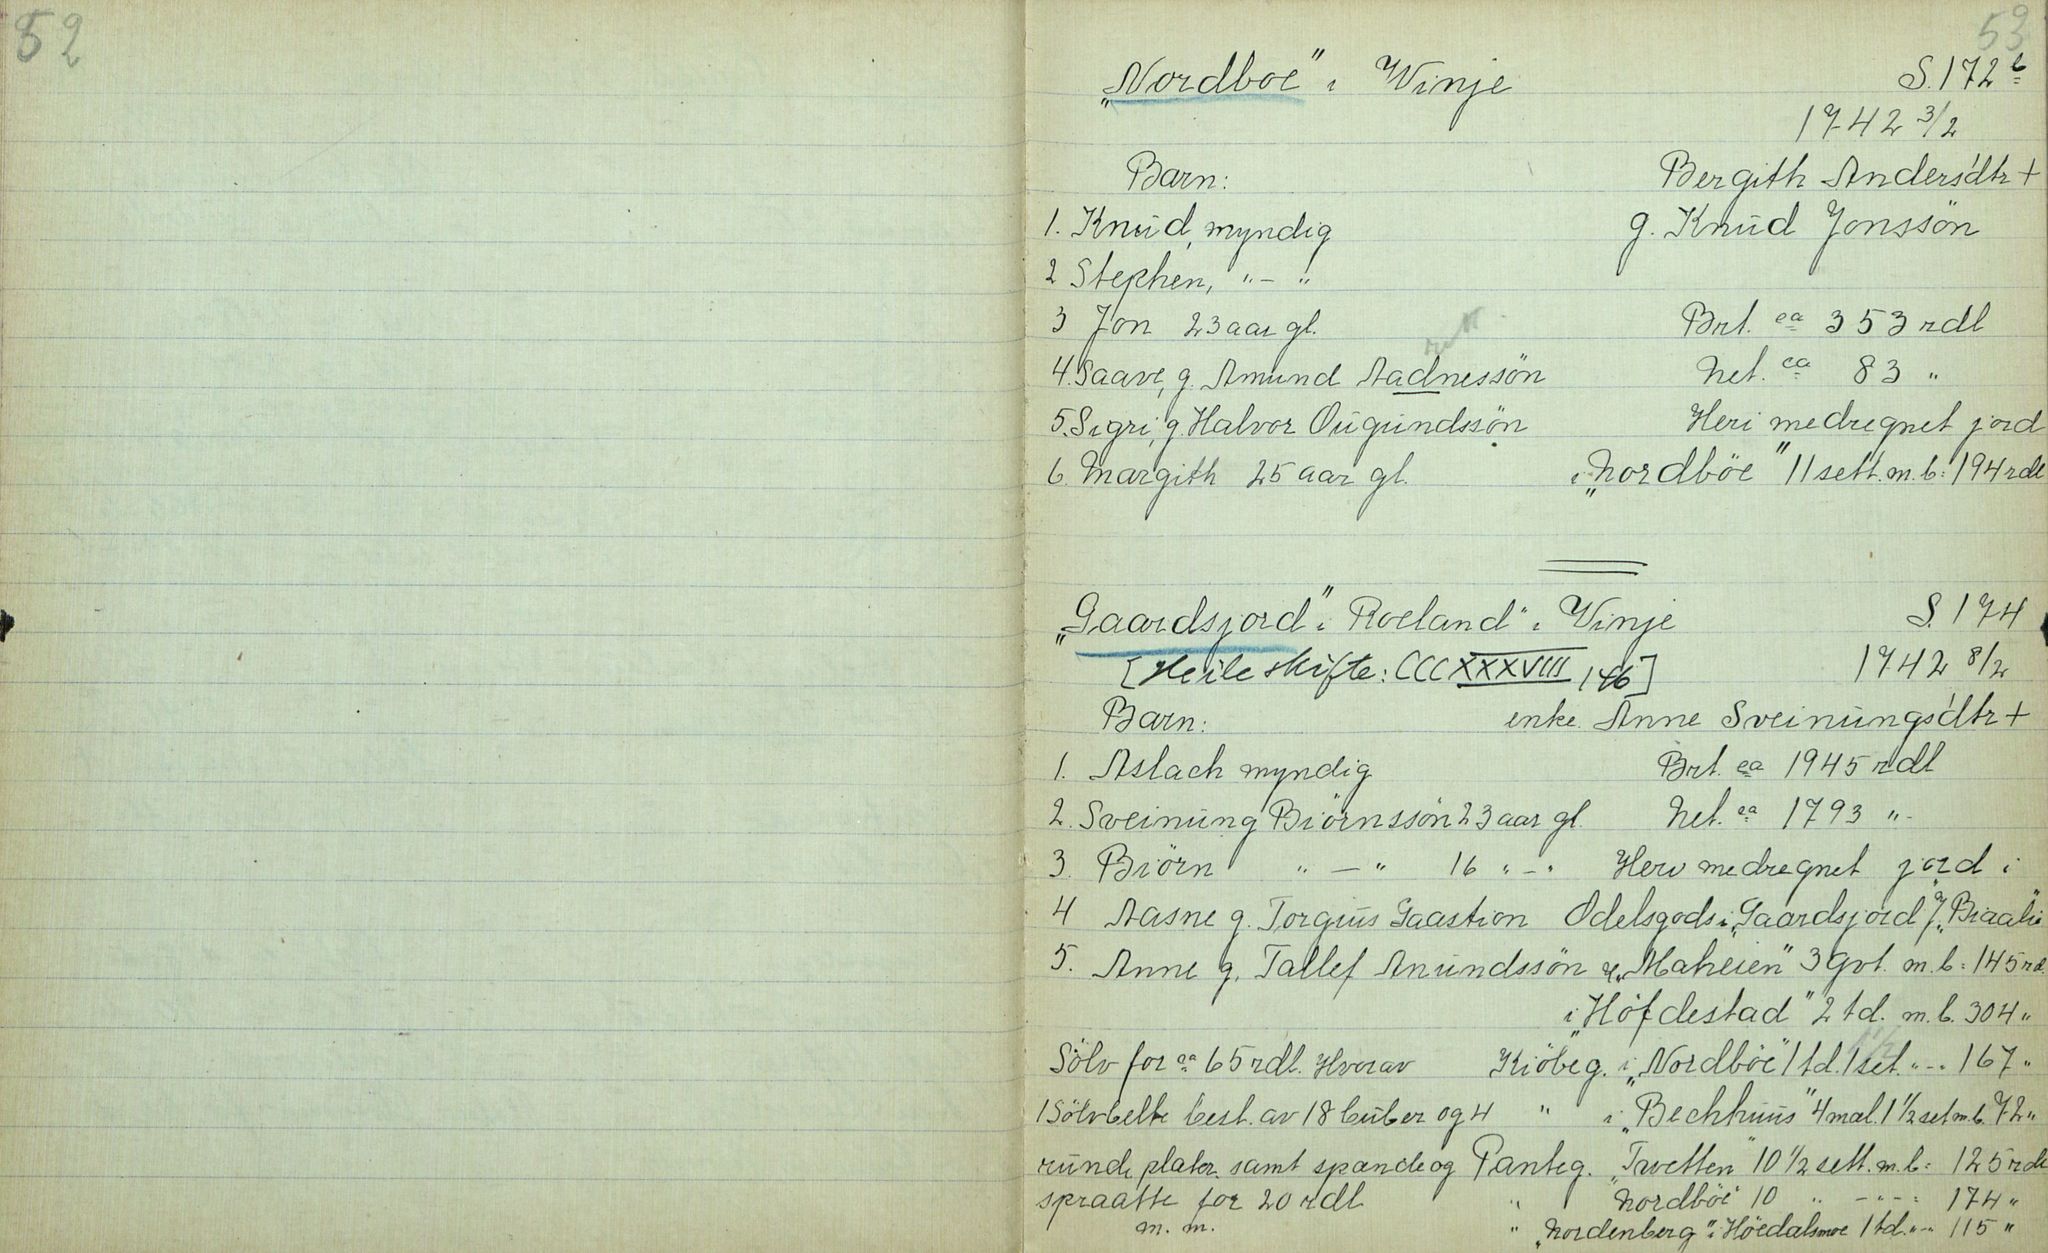 52
53
„Nordboe" i Winje S. 172 b
1742 3/2
Barn: Bergith Anders'dtr +
1. Knud, myndig g. Knud Jonssön
2 Stephen, " - "
3 Jon 23 aar gl. Brt. ca 353 rdl
4. Saave, g. Amund Aadnessön Net. ca 83 "
5. Sigri, g. Halvor Ougundssön Heri medregnet jord
6. Margith 25 aar gl. i „Nordböe" 11 sett. m. b: 194 rdl
„Gaardsjord" i Roeland" i Winje S. 174
[Heile skifte: CCCXXXVIII, 146] 1742 8/2
Barn: enke Anne Sveinungs'dtr +
1. Aslach myndig Brt. ca 1945 rdl
2. Sveinung Biörnssön 23 aar gl. Net. ca 1793 "
3. Biörn " - " 16 " - " Herv medregnet jord i
4 Aasne g. Torgius Gaastion Odelsgods i „Gaardsjord",
5. Anne g. Tallef Anundssön „Maheien" 3 gvt. m. b: 145 rd.
i „Höfdestad" 2 td. m. b. 304 "
Sölv for ca 65 rdl. Hvorav Kiöbeg. i „Nordböe" 1 td. 1 set. " - 167 "
1 Sölvbelte best. av 18 buber og 4 " i „Bechhuus" 4 mæl. 1 1/2 set m.b. 72 "
runde plater samt spænde og Panteg. „Tvetten" 10 1/2 sett. m. b: 125 rdl
spraatte for 20 rdl " Nordböe" 10 " - " - : 174 "
m. m. " „Nordenberg" i Höedalsmoe 1 td. " - 115 "